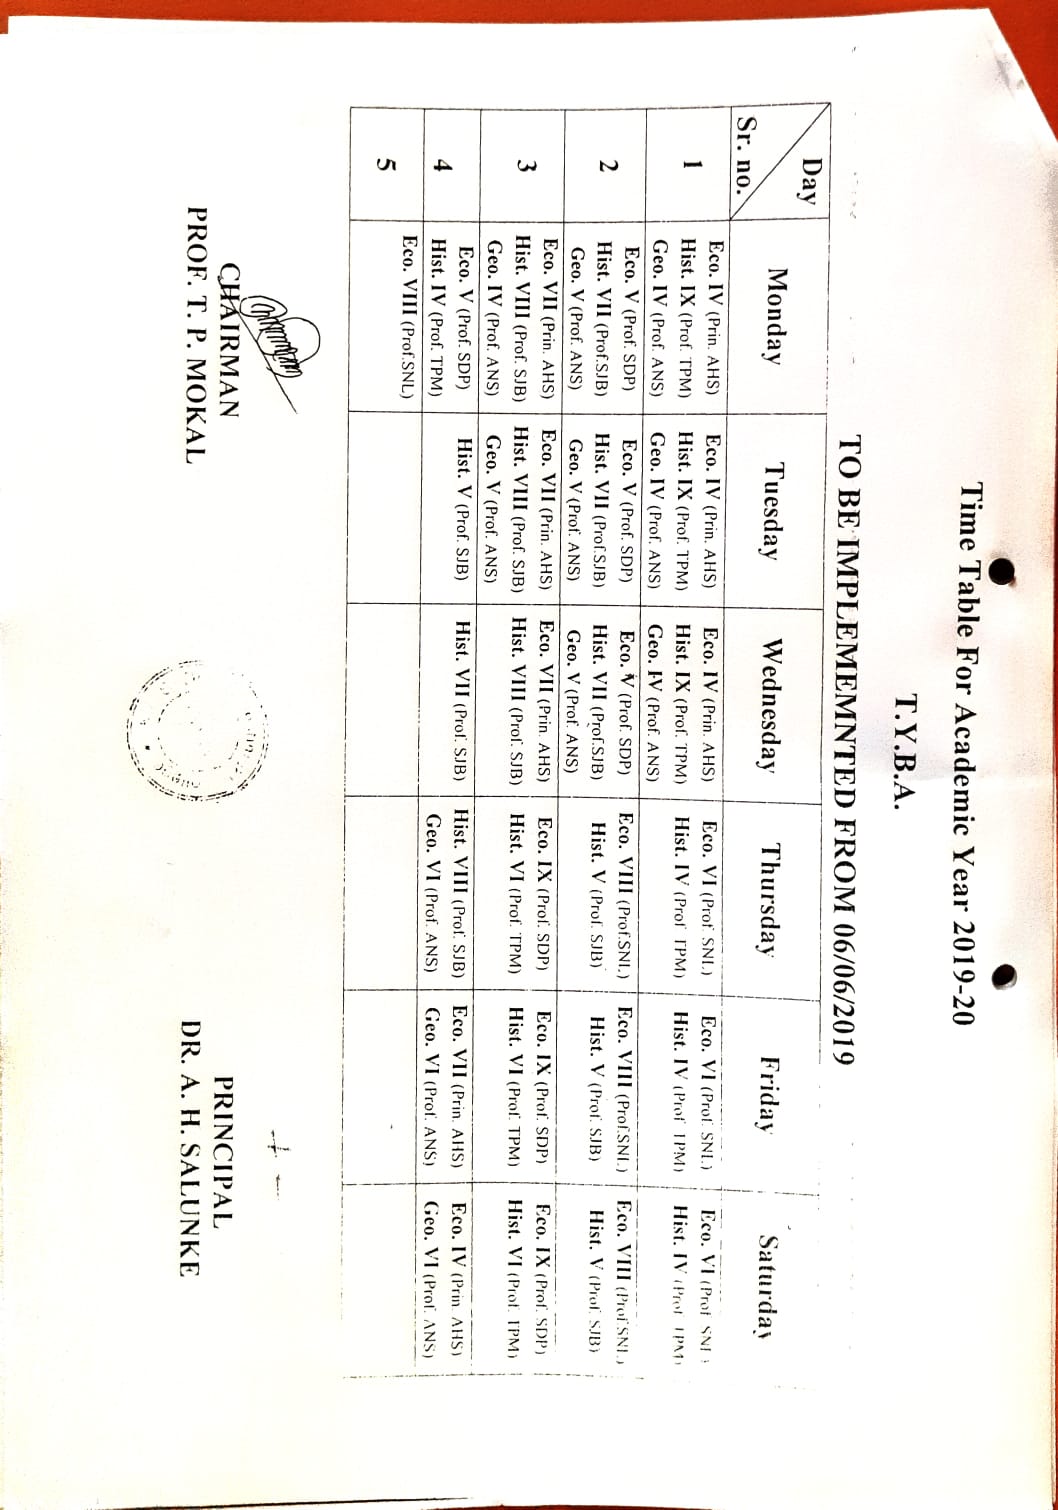 Time Table For Academic Year 2019-20
T.Y.B.A.
TO BE IMPLEMEMNTED FROM 06/06/2019
Day
Sr. no.
Monday Tuesday Wednesday Thursday Friday Saturday
1
Eco. IV (Prin. AHS) Eco. IV (Prin. AHS) Eco. IV (Prin. AHS) Eco. VI (Prof. SNL) Eco. VI (Prof. SNL) Eco. VI (Prof. SNL)
Hist. IX (Prof. TPM) Hist. IX (Prof. TPM) Hist. IX (Prof. TPM) Hist. IV (Prof TPM) Hist. IV (Prof TPM) Hist. IV (Prof TPM)
Geo. IV (Prof. ANS) Geo. IV (Prof. ANS) Geo. IV (Prof. ANS)
2
Eco. V (Prof. SDP) Eco. V (Prof. SDP) Eco. V (Prof. SDP) Eco. VIII (Prof.SNL) Eco. VIII (Prof.SNL) Eco. VIII (Prof.SNL)
Hist. VII (Prof.SJB) Hist. VII (Prof.SJB) Hist. VII (Prof.SJB) Hist. V (Prof. SJB) Hist. V (Prof. SJB) Hist. V (Prof. SJB)
Geo. V (Prof. ANS) Geo. V (Prof. ANS) Geo. V (Prof. ANS)
3
Eco. VII (Prin. AHS) Eco. VII (Prin. AHS) Eco. VII (Prin. AHS) Eco. IX (Prof. SDP) Eco. IX (Prof. SDP) Eco. IX (Prof. SDP)
Hist. VIII (Prof. SJB) Hist. VIII (Prof. SJB) Hist. VIII (Prof. SJB) Hist. VI (Prof. TPM) Hist. VI (Prof. TPM) Hist. VI (Prof. TPM)
Geo. IV (Prof. ANS) Geo. V (Prof. ANS)
4
Eco. V (Prof. SDP) Hist. V (Prof. SJB) Hist. VII (Prof. SJB) Hist. VIII (Prof. SJB) Eco. VII (Prin. AHS) Eco. IV (Prin. AHS)
Hist. IV (Prof. TPM) Geo. VI (Prof. ANS) Geo. VI (Prof. ANS) Geo. VI (Prof. ANS)
5
Eco. VIII (Prof.SNL)
CHAIRMAN PRINCIPAL
PROF. T. P. MOKAL DR. A. H. SALUNKE